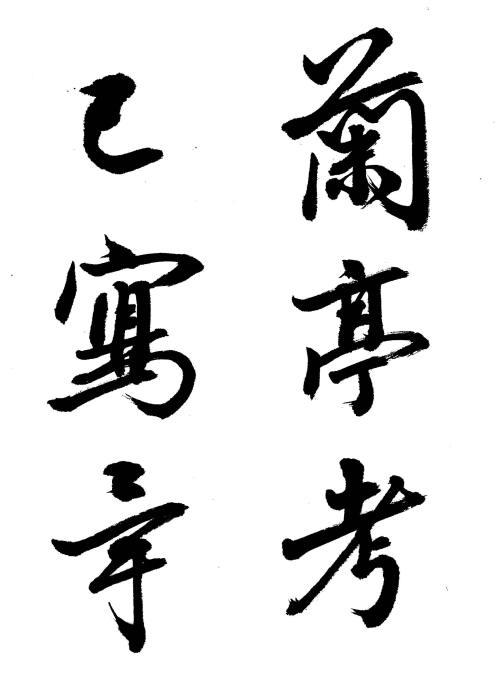 蘭亭考
已寫辛